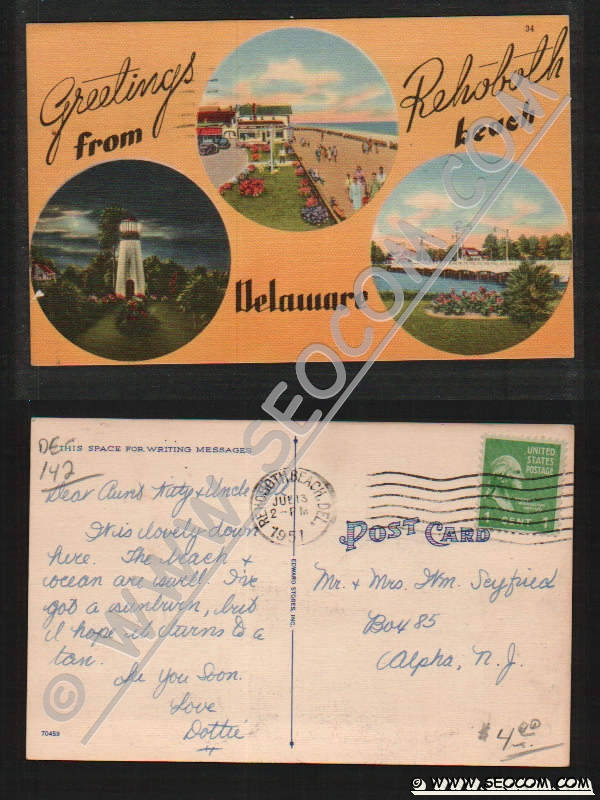 34
Greetings
from
Rehoboth
beach
Delaware
© WWW.SEOCOM.COM
DE
142
THIS SPACE FOR WRITING MESSAGES
Dear Aunt Katy & Uncle
It is lovely down
here. The beach &
ocean are swell. I've
got a sunburn, but
I hope it turns to a
tan.
See You Soon.
Love
Dottie
70459
EDWARD STORES, INC.
REHOBOTH BEACH, DEL.
JUL 13
2-PM
1951
UNITED
STATES
POSTAGE
1 CENT 1
POST CARD
Mr. & Mrs. Wm. Seyfried
Box 485
Alpha, N. J.
$4.00
© WWW.SEOCOM.COM